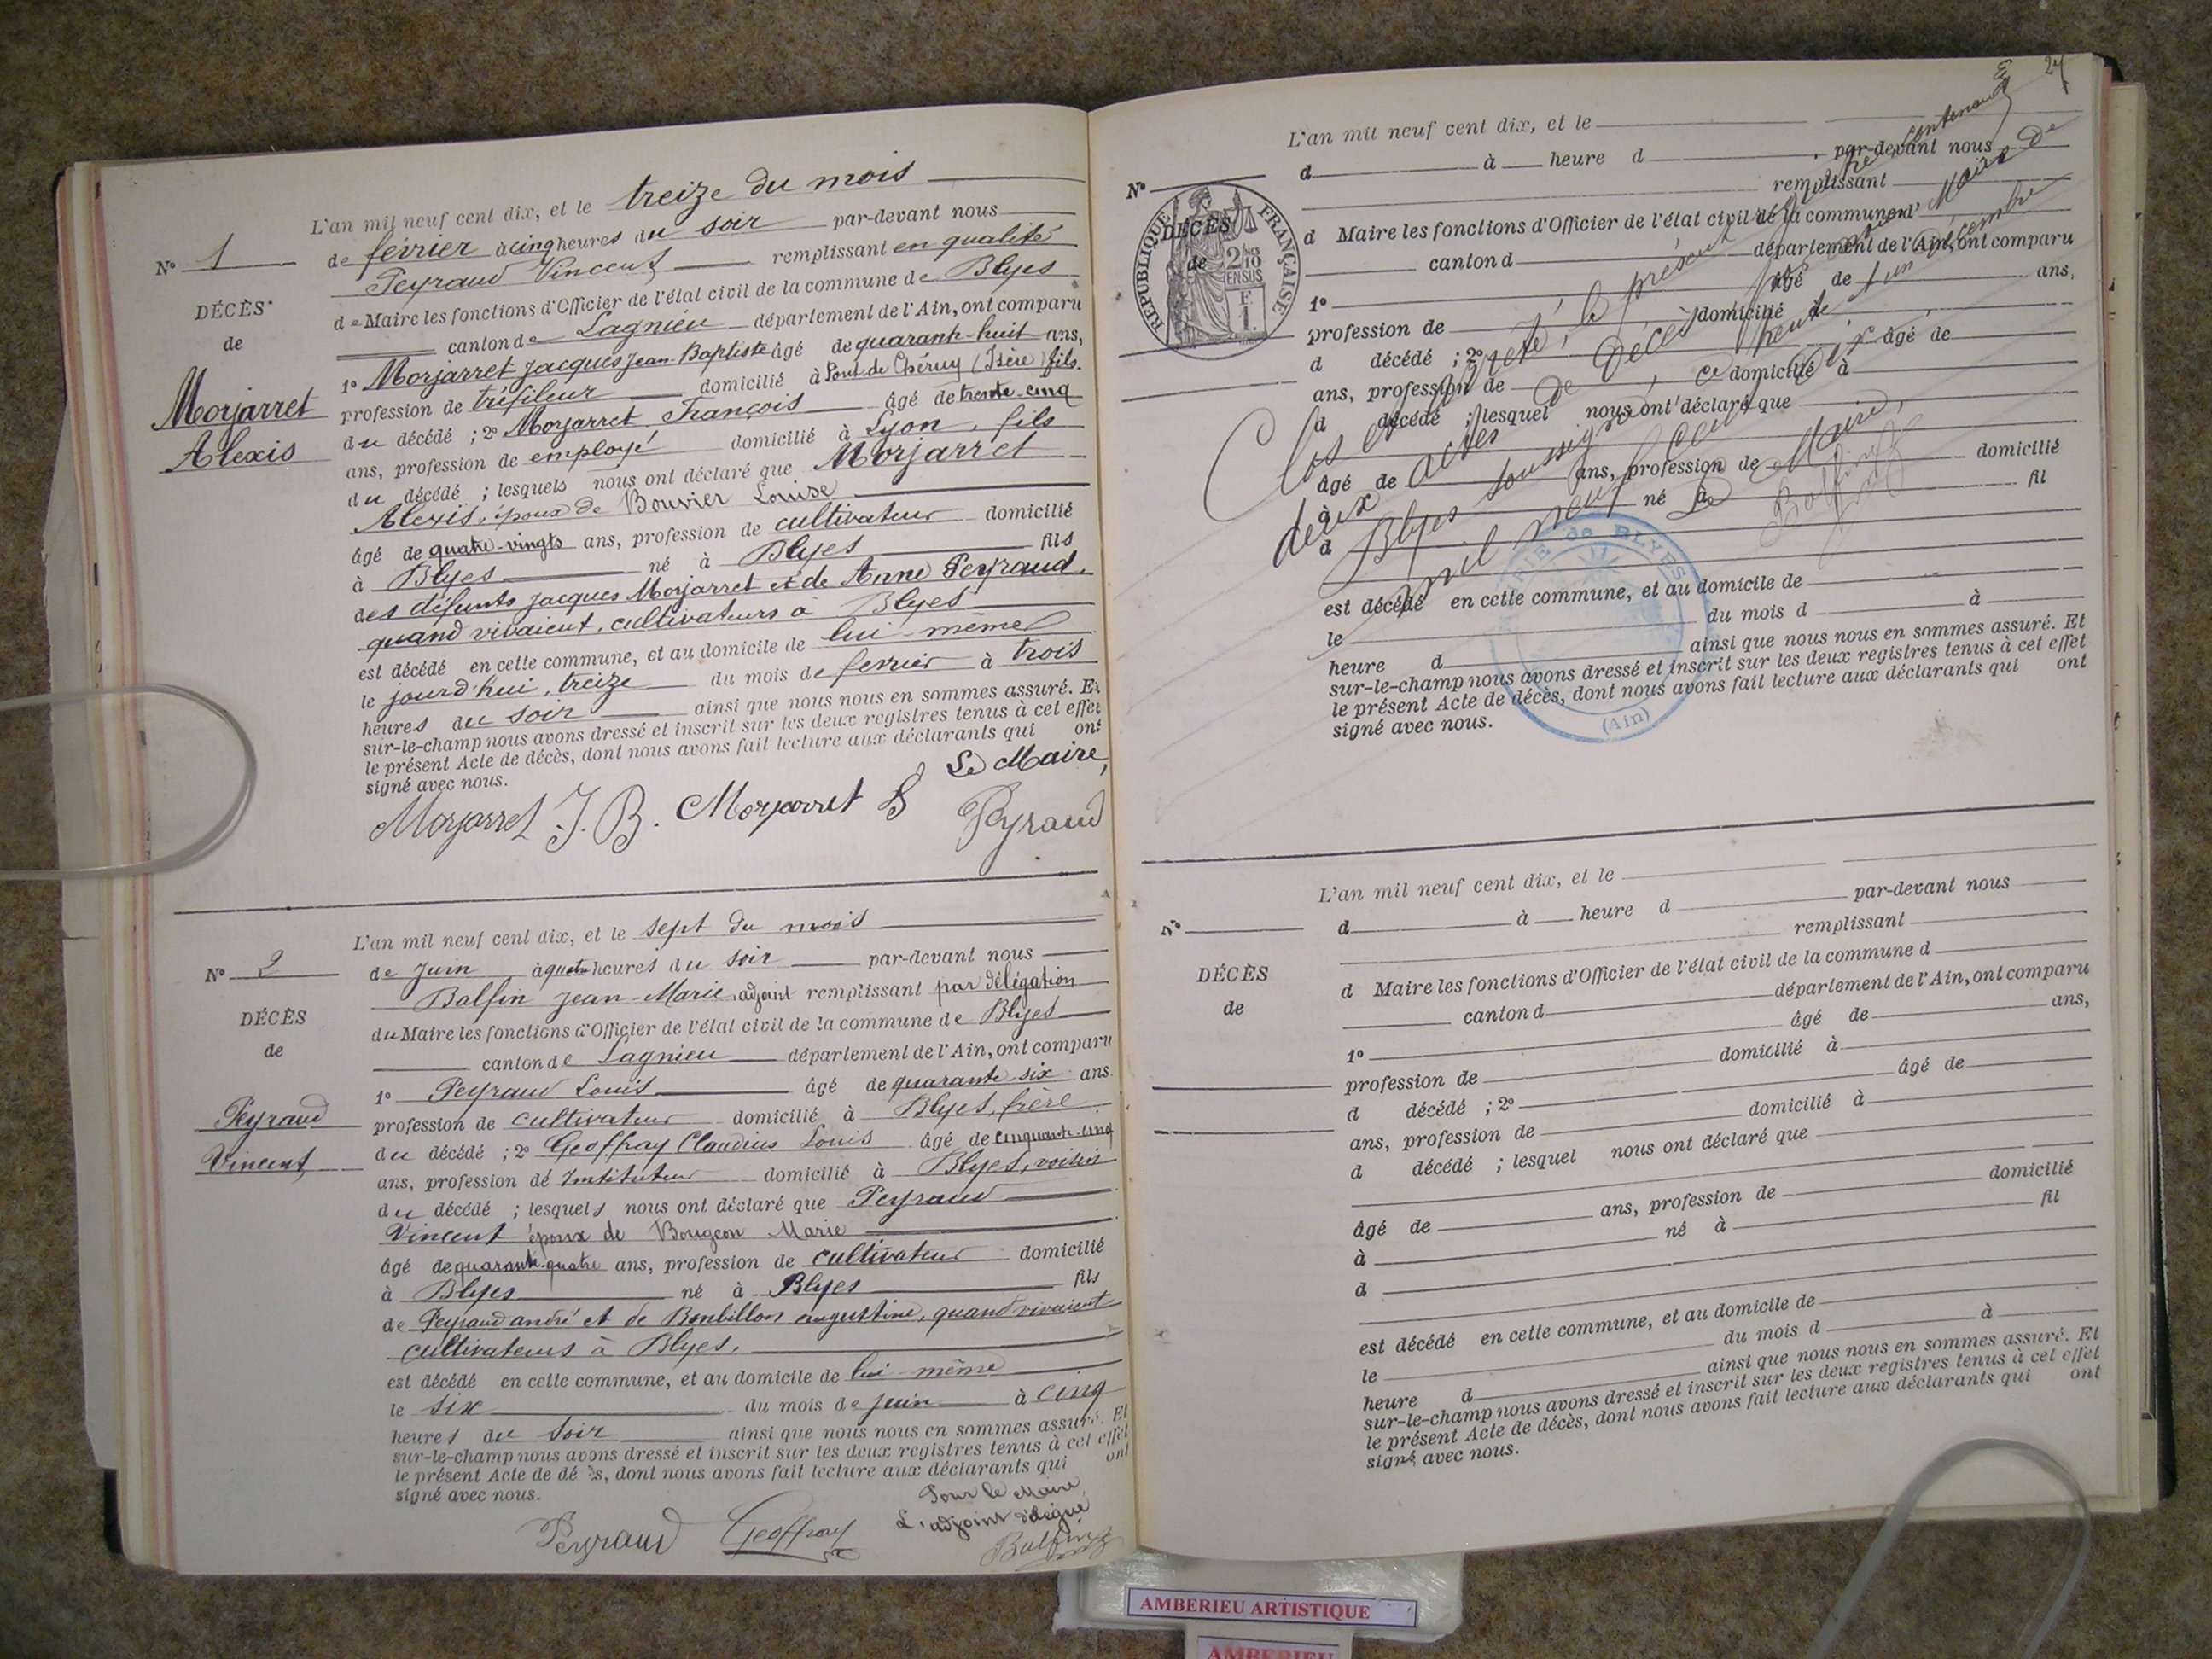 L'an mil neuf cent dix, et le treize du mois
de février à cinq heures du soir par-devant nous
Peyraud Vincent remplissant en qualité
de Maire les fonctions d'Officier de l'état civil de la commune de Blyes
canton de Lagnieu département de l'Ain, ont comparu
1o Morjarret Jacques Jean Baptiste âgé de quarante-huit ans,
profession de tréfileur domicilié à Pont de Chéruy (Isère) fils
du décédé ; 2o Morjarret François âgé de trente-cinq
ans, profession de employé domicilié à Lyon, fils
du décédé ; lesquels nous ont déclaré que Morjarret
Alexis, époux de Bouvier Louise
âgé de quatre-vingts ans, profession de cultivateur domicilié
à Blyes né à Blyes fils
des défunts Jacques Morjarret et de Anne Peyraud,
quand vivaient, cultivateurs à Blyes
est décédé en cette commune, et au domicile de lui-même
le jourd'hui, treize du mois de février à trois
heures du soir ainsi que nous nous en sommes assuré. Et
sur-le-champ nous avons dressé et inscrit sur les deux registres tenus à cet effet
le présent Acte de décès, dont nous avons fait lecture aux déclarants qui ont
signé avec nous.
Le Maire,
Morjarret J. B. Morjarret Peyraud
No 1
DÉCÈS
de
Morjarret
Alexis
L'an mil neuf cent dix, et le sept du mois
de Juin à quatre heures du soir par-devant nous
Balfin Jean-Marie, adjoint remplissant par délégation
du Maire les fonctions d'Officier de l'état civil de la commune de Blyes
canton de Lagnieu département de l'Ain, ont comparu
1o Peyraud Louis âgé de quarante six ans
profession de cultivateur domicilié à Blyes, frère
du décédé ; 2o Geoffray Claudius Louis âgé de cinquante-cinq
ans, profession de Instituteur domicilié à Blyes, voisin
du décédé ; lesquels nous ont déclaré que Peyraud
Vincent époux de Bougeon Marie
âgé de quarante-quatre ans, profession de cultivateur domicilié
à Blyes né à Blyes fils
de Peyraud André et de Bonbillon augustine, quand vivaient
cultivateurs à Blyes,
est décédé en cette commune, et au domicile de lui-même
le six du mois de juin à cinq
heures du soir ainsi que nous nous en sommes assuré. Et
sur-le-champ nous avons dressé et inscrit sur les deux registres tenus à cet effet
le présent Acte de dé s, dont nous avons fait lecture aux déclarants qui ont
signé avec nous.
Pour le Maire,
L'adjoint délégué
Peyraud Geoffray Balfin
No 2
DÉCÈS
de
Peyraud
Vincent
27
L'an mil neuf cent dix, et le
d à heure d par-devant nous
remplissant
d Maire les fonctions d'Officier de l'état civil de la commune
canton d département de l'Ain, ont comparu
1o âgé de ans,
profession de domicilié à
d décédé ; 2o âgé de
ans, profession de domicilié à
d décédé ; lesquel nous ont déclaré que
âgé de ans, profession de domicilié
à né à fil
d
est décédé en cette commune, et au domicile de
le du mois d à
heure d ainsi que nous nous en sommes assuré. Et
sur-le-champ nous avons dressé et inscrit sur les deux registres tenus à cet effet
le présent Acte de décès, dont nous avons fait lecture aux déclarants qui ont
signé avec nous.
No
DÉCÈS
de
RÉPUBLIQUE FRANÇAISE
Clos et arrêté, le présent contenant
deux actes de Décès Maire de
Blyes soussigné, ce trente et un Décembre
mil neuf cent dix
Le Maire,
Balfin
MAIRIE de BLYES
(Ain)
L'an mil neuf cent dix, et le
d à heure d par-devant nous
remplissant
d Maire les fonctions d'Officier de l'état civil de la commune d
canton d département de l'Ain, ont comparu
1o âgé de ans,
profession de domicilié à
d décédé ; 2o âgé de
ans, profession de domicilié à
d décédé ; lesquel nous ont déclaré que
âgé de ans, profession de domicilié
à né à fil
d
est décédé en cette commune, et au domicile de
le du mois d à
heure d ainsi que nous nous en sommes assuré. Et
sur-le-champ nous avons dressé et inscrit sur les deux registres tenus à cet effet
le présent Acte de décès, dont nous avons fait lecture aux déclarants qui ont
signé avec nous.
No
DÉCÈS
de
AMBERIEU ARTISTIQUE
AMBERIEU